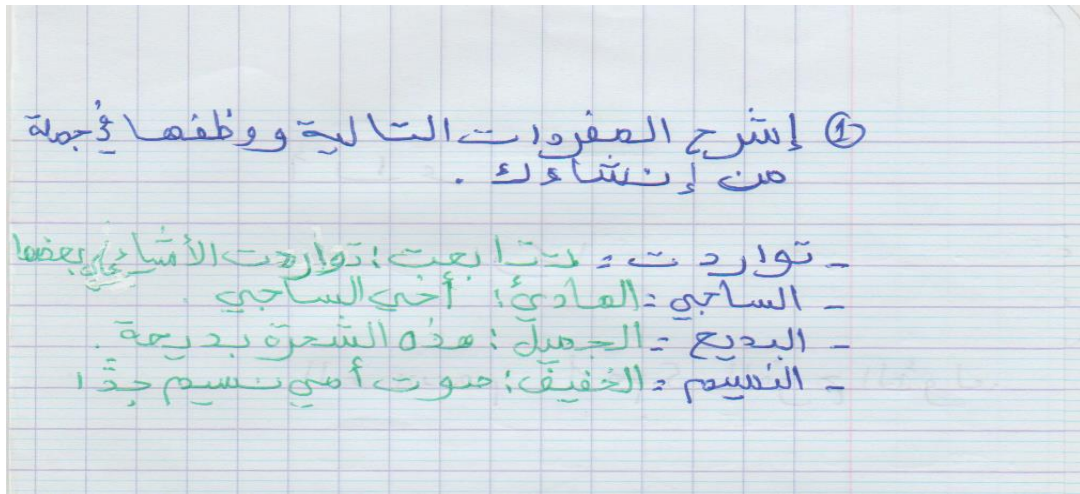 ① إشرح المفردات التالية ووظفها في جملة
من إنشاءك .
- تواردت = تتابعت : تواردت الأشياء على بعضها
- الساجي = الهادئ : أخي الساجي .
- البديع = الجميل : هذه الشجرة بديعة .
- النسيم = الخفيف : صوت أمي نسيم جدًّا